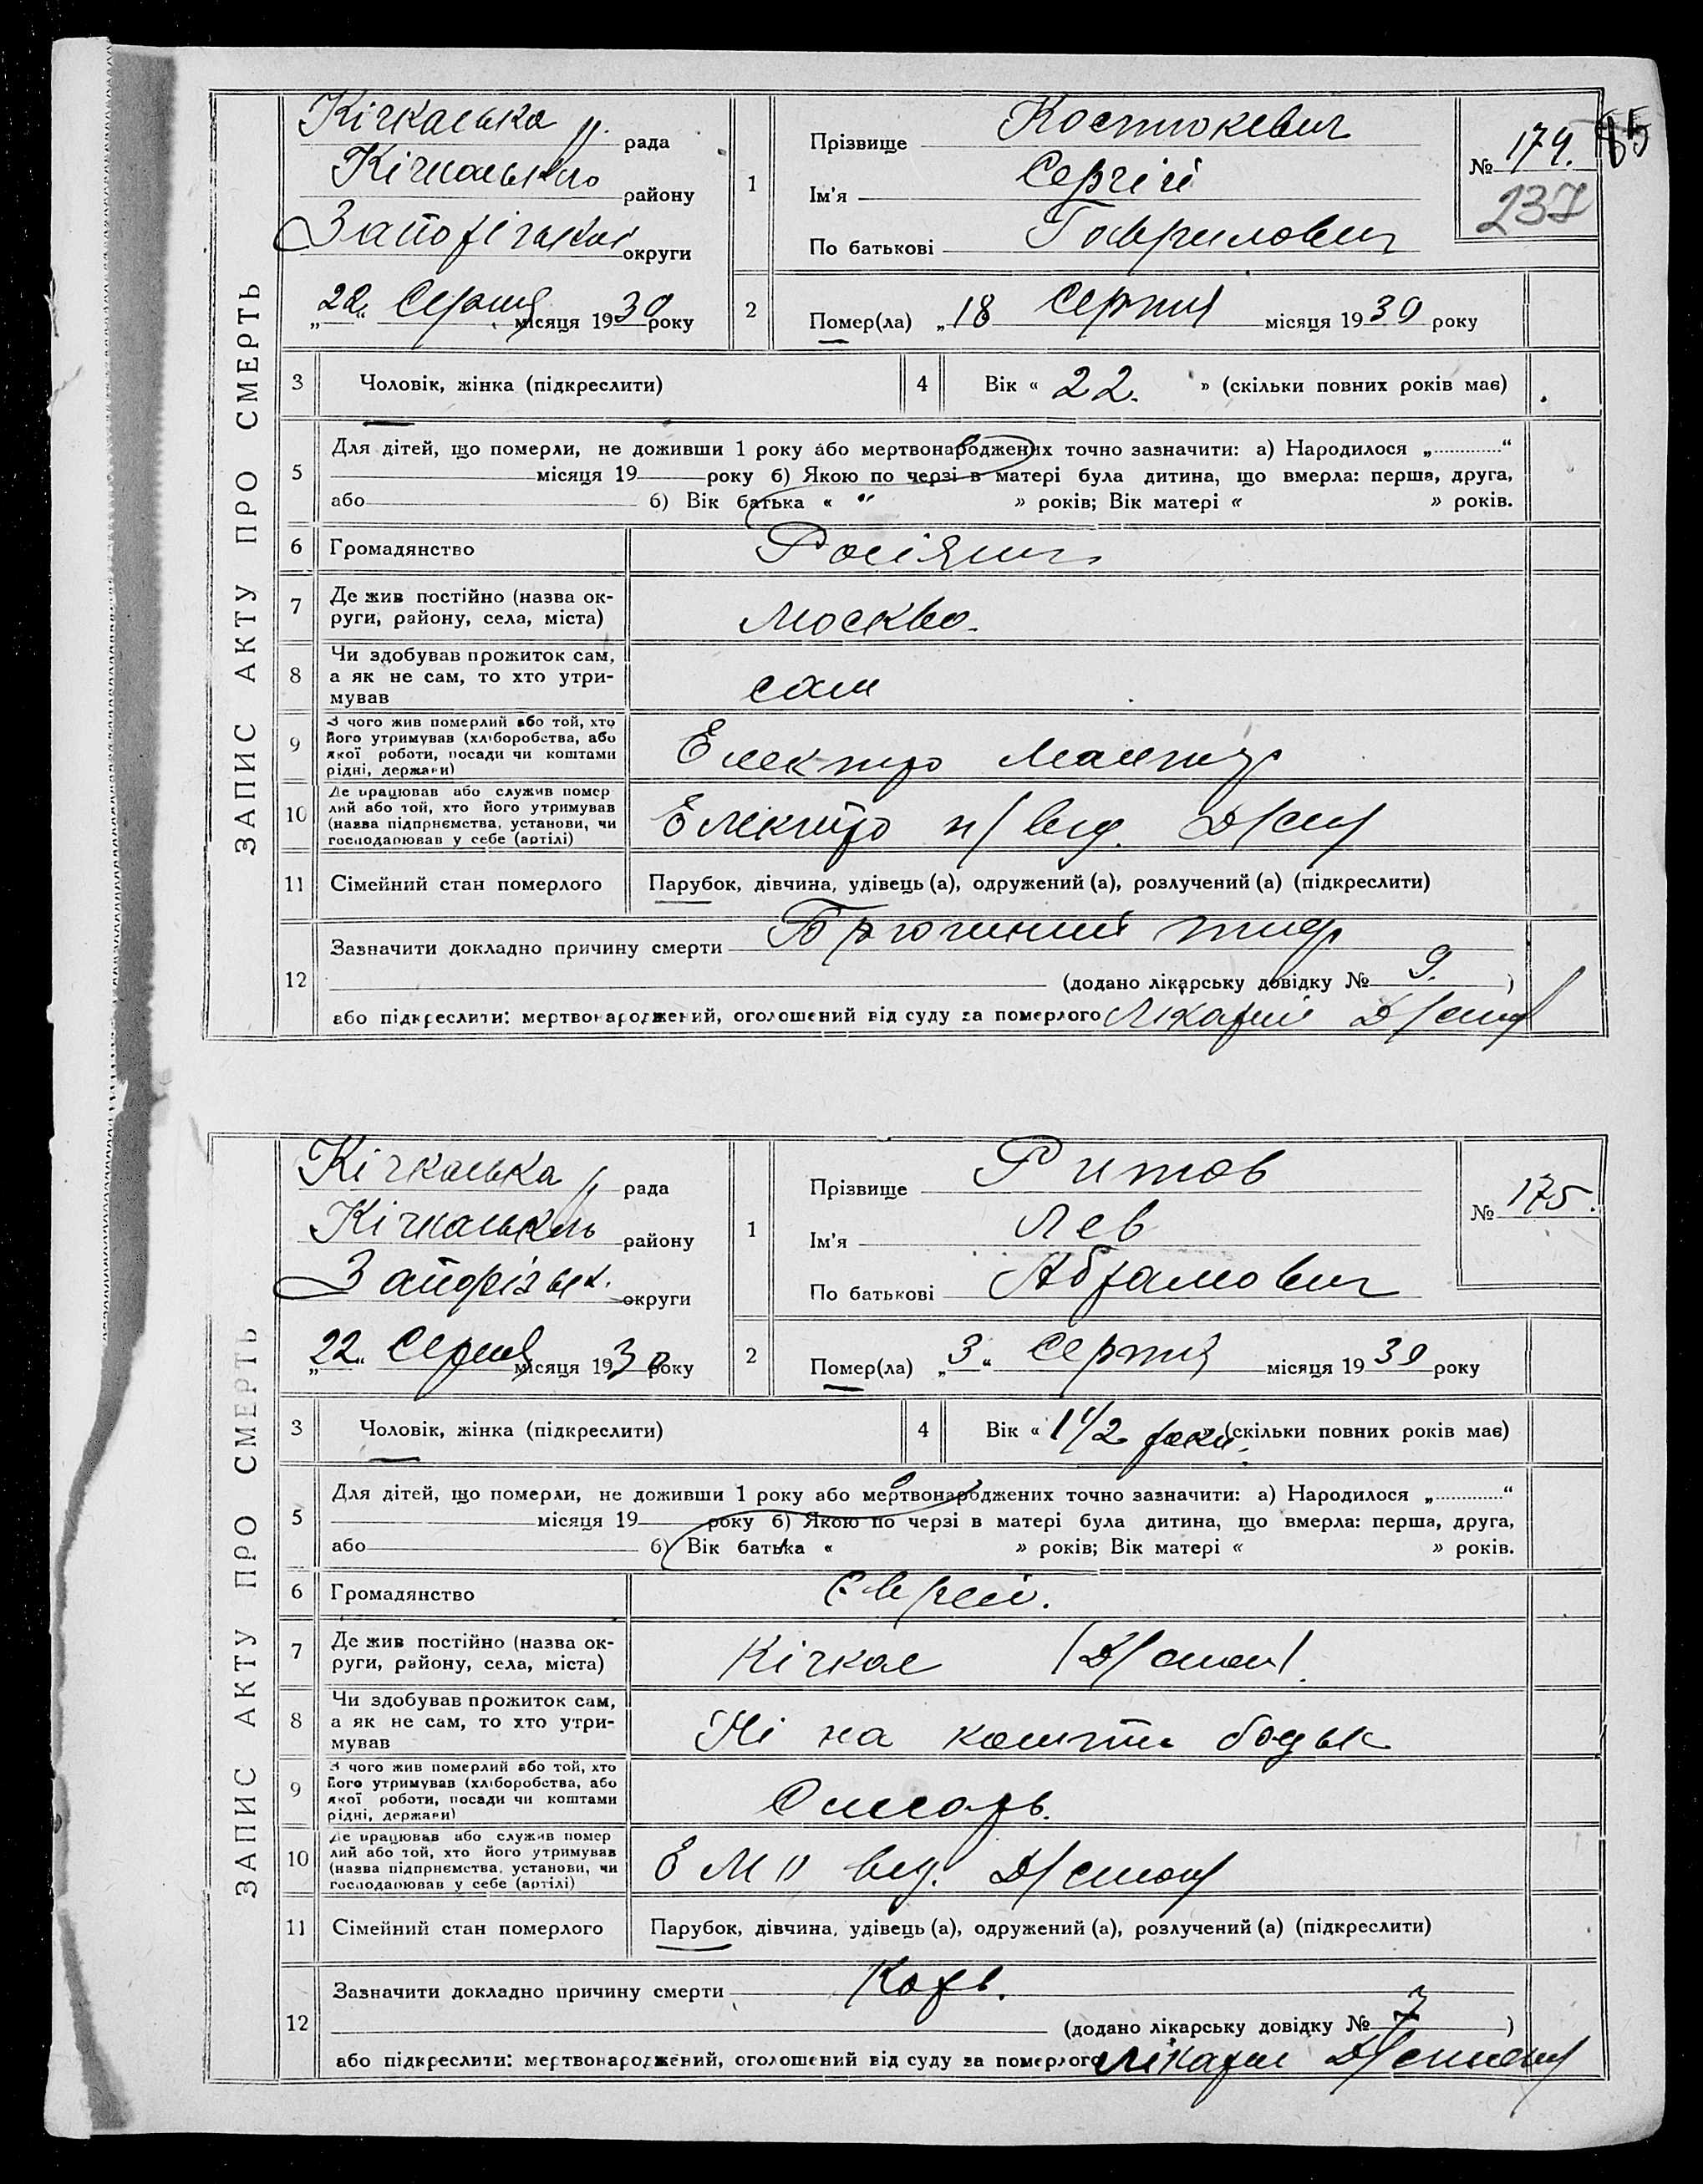 ЗАПИС АКТУ ПРО СМЕРТЬ
Кічкаська р. рада
Кічкаського району
Запорізької округи
„22“ Серпня місяця 1930 року
1
Прізвище Костюкевич
Ім'я Сергій
По батькові Гаврилович
№ 174. 85
237
2
Помер(ла) „18 Серпня місяця 1930 року
3 Чоловік, жінка (підкреслити)
4 Вік « 22. » (скільки повних років має)
5
Для дітей, що померли, не доживши 1 року або мертвонароджених точно зазначити: а) Народилося „............“
місяця 19 року б) Якою по черзі в матері була дитина, що вмерла: перша, друга,
або б) Вік батька « » років; Вік матері « » років.
6 Громадянство Росіянин
7 Де жив постійно (назва ок-
руги, району, села, міста) Москва.
8 Чи здобував прожиток сам,
а як не сам, то хто утри-
мував сам
9 З чого жив померлий або той, хто
його утримував (хліборобства, або
якої роботи, посади чи коштами
рідні, держави) Електро Монтер
10 Де працював або служив помер
лий або той, хто його утримував
(назва підприємства, установи, чи
господарював у себе (артілі) Електро від.
11 Сімейний стан померлого Парубок, дівчина, удівець (а), одружений (а), розлучений (а) (підкреслити)
12
Зазначити докладно причину смерти Брюшний тиф
(додано лікарську довідку № 9. )
або підкреслити: мертвонароджений, оголошений від суду за померлого Лікарні
ЗАПИС АКТУ ПРО СМЕРТЬ
Кічкаська р рада
Кічкаського району
Запорізьк. округи
„22“ Серпня місяця 1930 року
1
Прізвище Ритов
Ім'я Лев
По батькові Абрамович
№ 175.
2
Помер(ла) „3“ Серпня місяця 1930 року
3 Чоловік, жінка (підкреслити)
4 Вік « 1 1/2 роки. » (скільки повних років має)
5
Для дітей, що померли, не доживши 1 року або мертвонароджених точно зазначити: а) Народилося „............“
місяця 19 року б) Якою по черзі в матері була дитина, що вмерла: перша, друга,
або б) Вік батька « » років; Вік матері « » років.
6 Громадянство Єврей.
7 Де жив постійно (назва ок-
руги, району, села, міста) Кічкас
8 Чи здобував прожиток сам,
а як не сам, то хто утри-
мував Ні на кошти батьк
9 З чого жив померлий або той, хто
його утримував (хліборобства, або
якої роботи, посади чи коштами
рідні, держави) Слюсарь.
10 Де працював або служив помер
лий або той, хто його утримував
(назва підприємства, установи, чи
господарював у себе (артілі) від.
11 Сімейний стан померлого Парубок, дівчина, удівець (а), одружений (а), розлучений (а) (підкреслити)
12
Зазначити докладно причину смерти Корь.
(додано лікарську довідку № 7 )
або підкреслити: мертвонароджений, оголошений від суду за померлого Лікарні